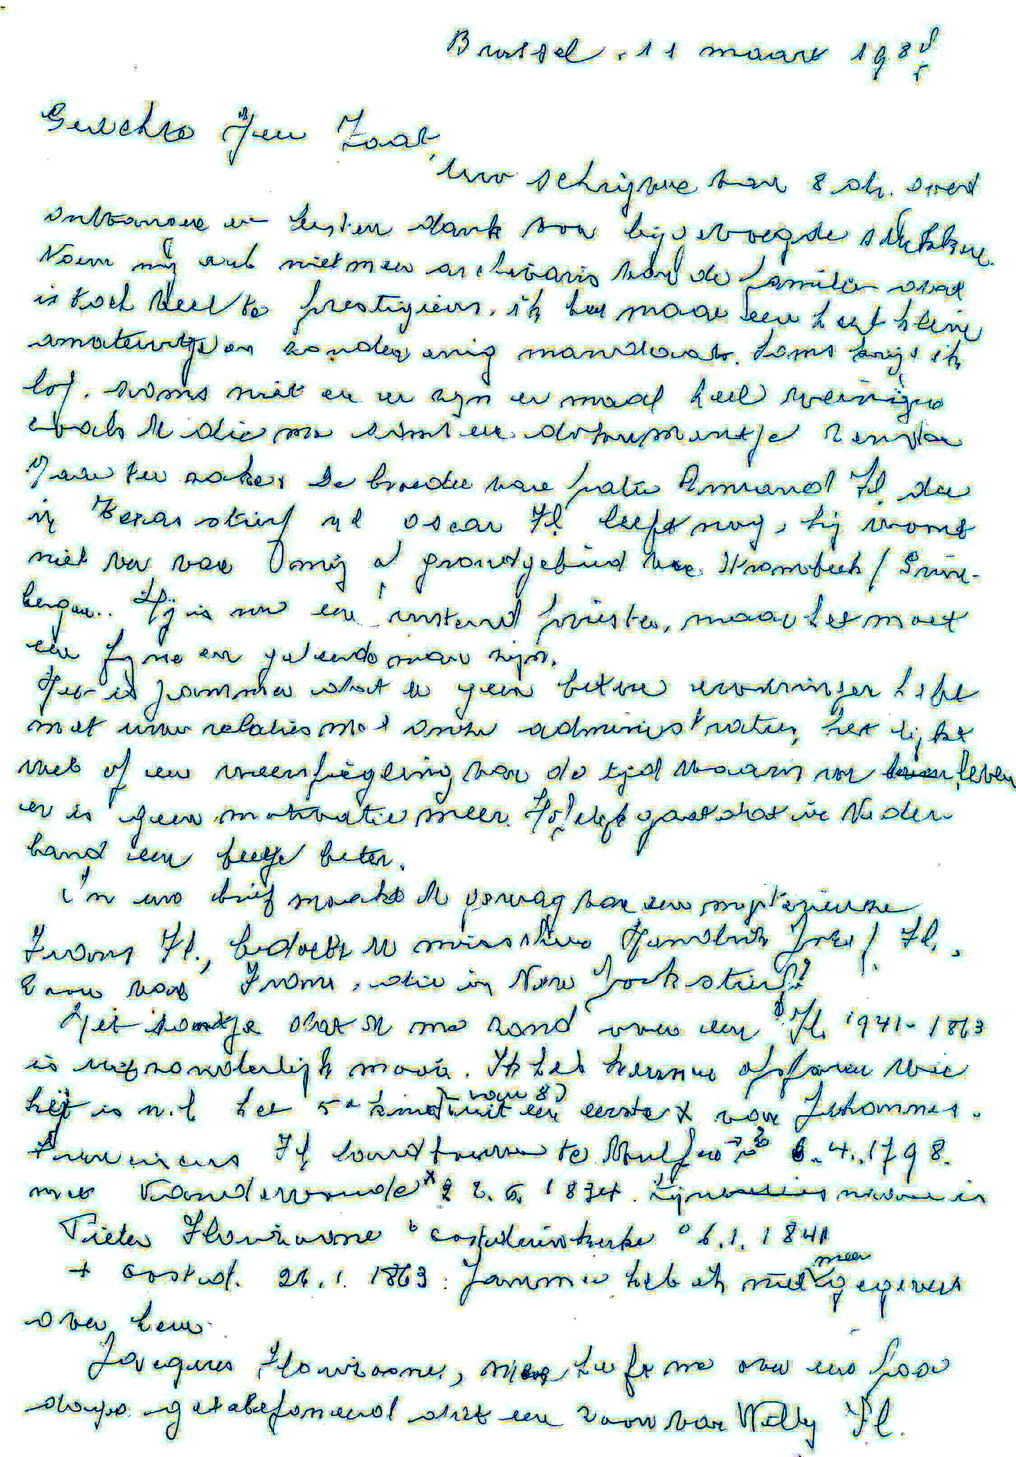 Brussel, 11 maart 198
Geachte Heer Zoat,
Uw schrijven van 8 dh. goed
ontvangen en besten dank voor bijgevoegde stukken.
Noem mij aub niet meer archivaris van de familie want
is toch veel te prestigieus, ik ben maar een heel kleine
amateurtje en zonder enig mandaat. Soms krijg ik
lof, soms niet en er zijn er maar heel weinigen
zoals U die me eens een dokumentje zenden
Maar ter zake: De broeder van pater Armand Fl. die
in Texas stierf nl Oscar Fl leeft nog, hij woont
niet ver van mij o/ grondgebied van Strombeek / Grim-
bergen. Hij is nu een rustend priester, maar het moet
een fijne en geleerde man zijn.
Het is jammer dat U geen betere ervaringen hebt
met uw relaties met onze administratie, het lijkt
wel of een weerspiegeling van de tijd waarin we leven
er is geen motivatie meer. Hopelijk gaat dat in Neder-
land een beetje beter.
In uw brief maakt U gewag van een mysterieuze
Frans Fl., bedoelt U misschien Hendrik Jozef Fl.,
zoon van Frans, die in New York stierf?
Het zantje dat U me zond over een Fl. 1941-1863
is uitzonderlijk mooi. Ik heb kunnen opsporen wie
hij is n.l. het 5e kind (van 8) uit een eerste x van Johannes-
Franciscus Fl landbouwer te ° 6.4.1798.
met Vanderwoude x 22.5.1834. naam is
Pieter ° 6.1.1841
+ Oostkst. 26.1.1863. Jammer heb ik niet meer gegevens
over hem.
Jacques, heeft me over een paar
dagen getelefoneerd dat een zoon van Willy Fl.